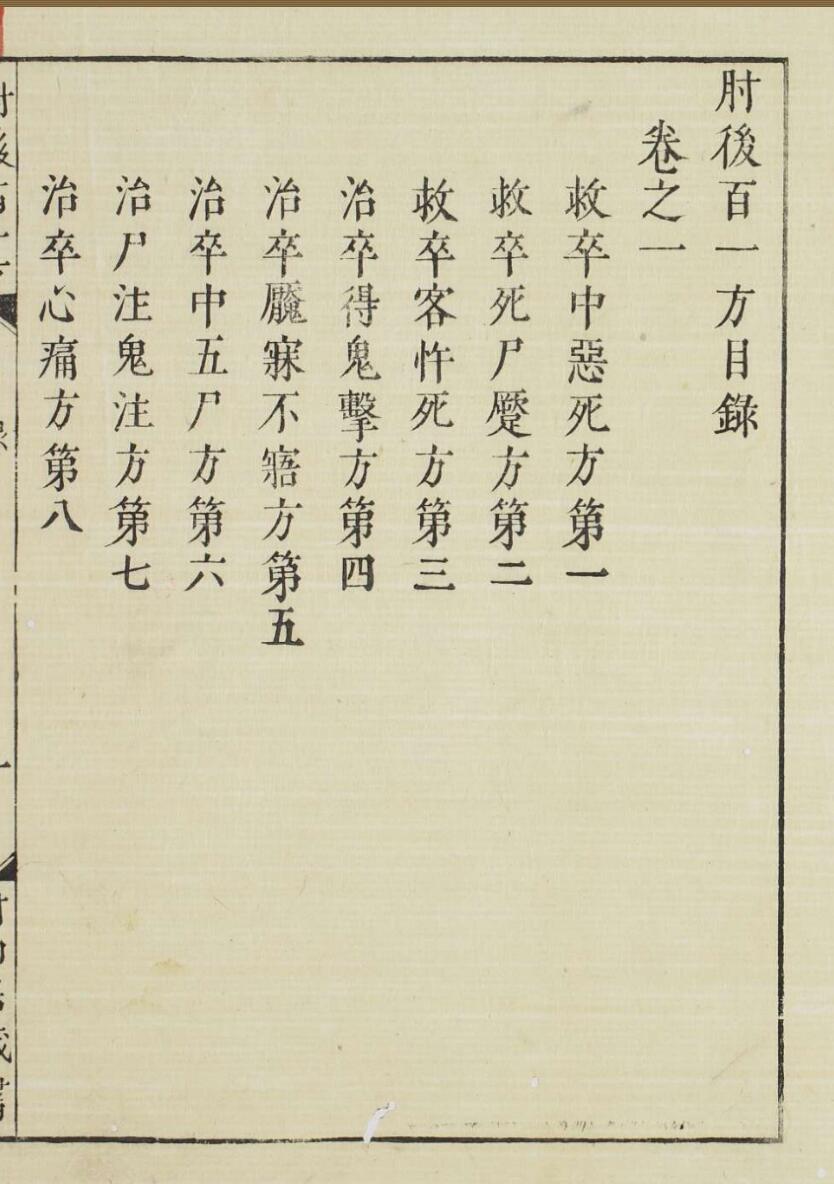 肘後百一方目錄
卷之一
救卒中惡死方第一
救卒死尸蹷方第二
救卒客忤死方第三
治卒得鬼擊方第四
治卒魘寐不寤方第五
治卒中五尸方第六
治尸注鬼注方第七
治卒心痛方第八